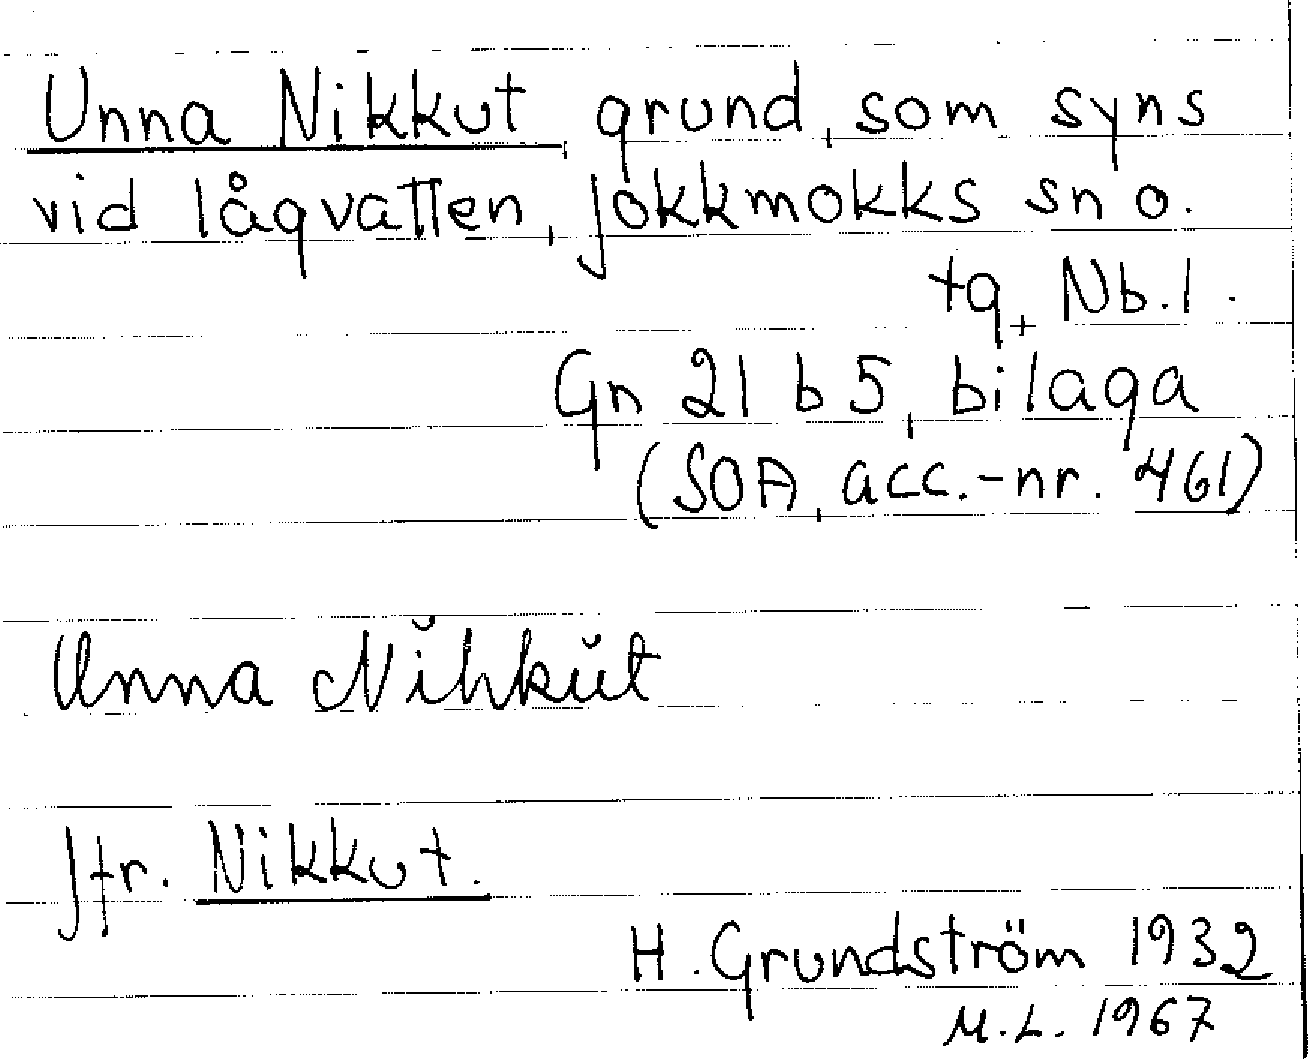 Unna Nikkut, grund, som syns
vid lågvatten, Jokkmokks sn o.
tg, Nb. l.
Gn 21 b 5, bilaga
(SOA, acc.-nr. 461)
Unna Nĭhkŭt
Jfr. Nikkut.
H. Grundström 1932
M.L. 1967